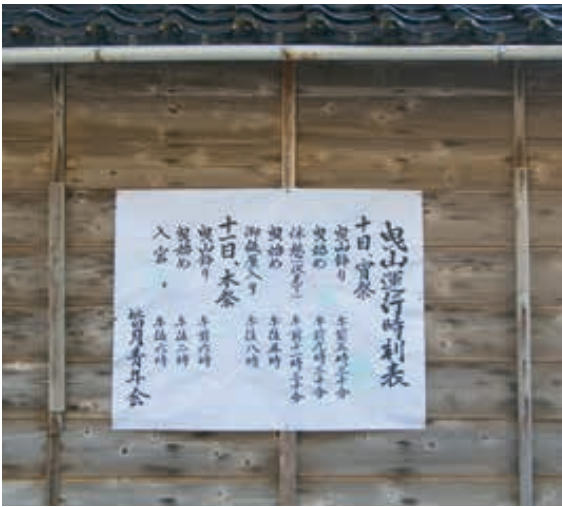 曳山運行時刻表
十日、宵祭
曳山飾り 午前六時三十分
曳始め 午前八時三十分
休憩 午前十一時三十分
曳始め 午後五時
御仮屋入り 午後八時
十一日、本祭
曳山飾り 午前六時
曳始め 午後一時
入宮 午後六時
皆月青年会